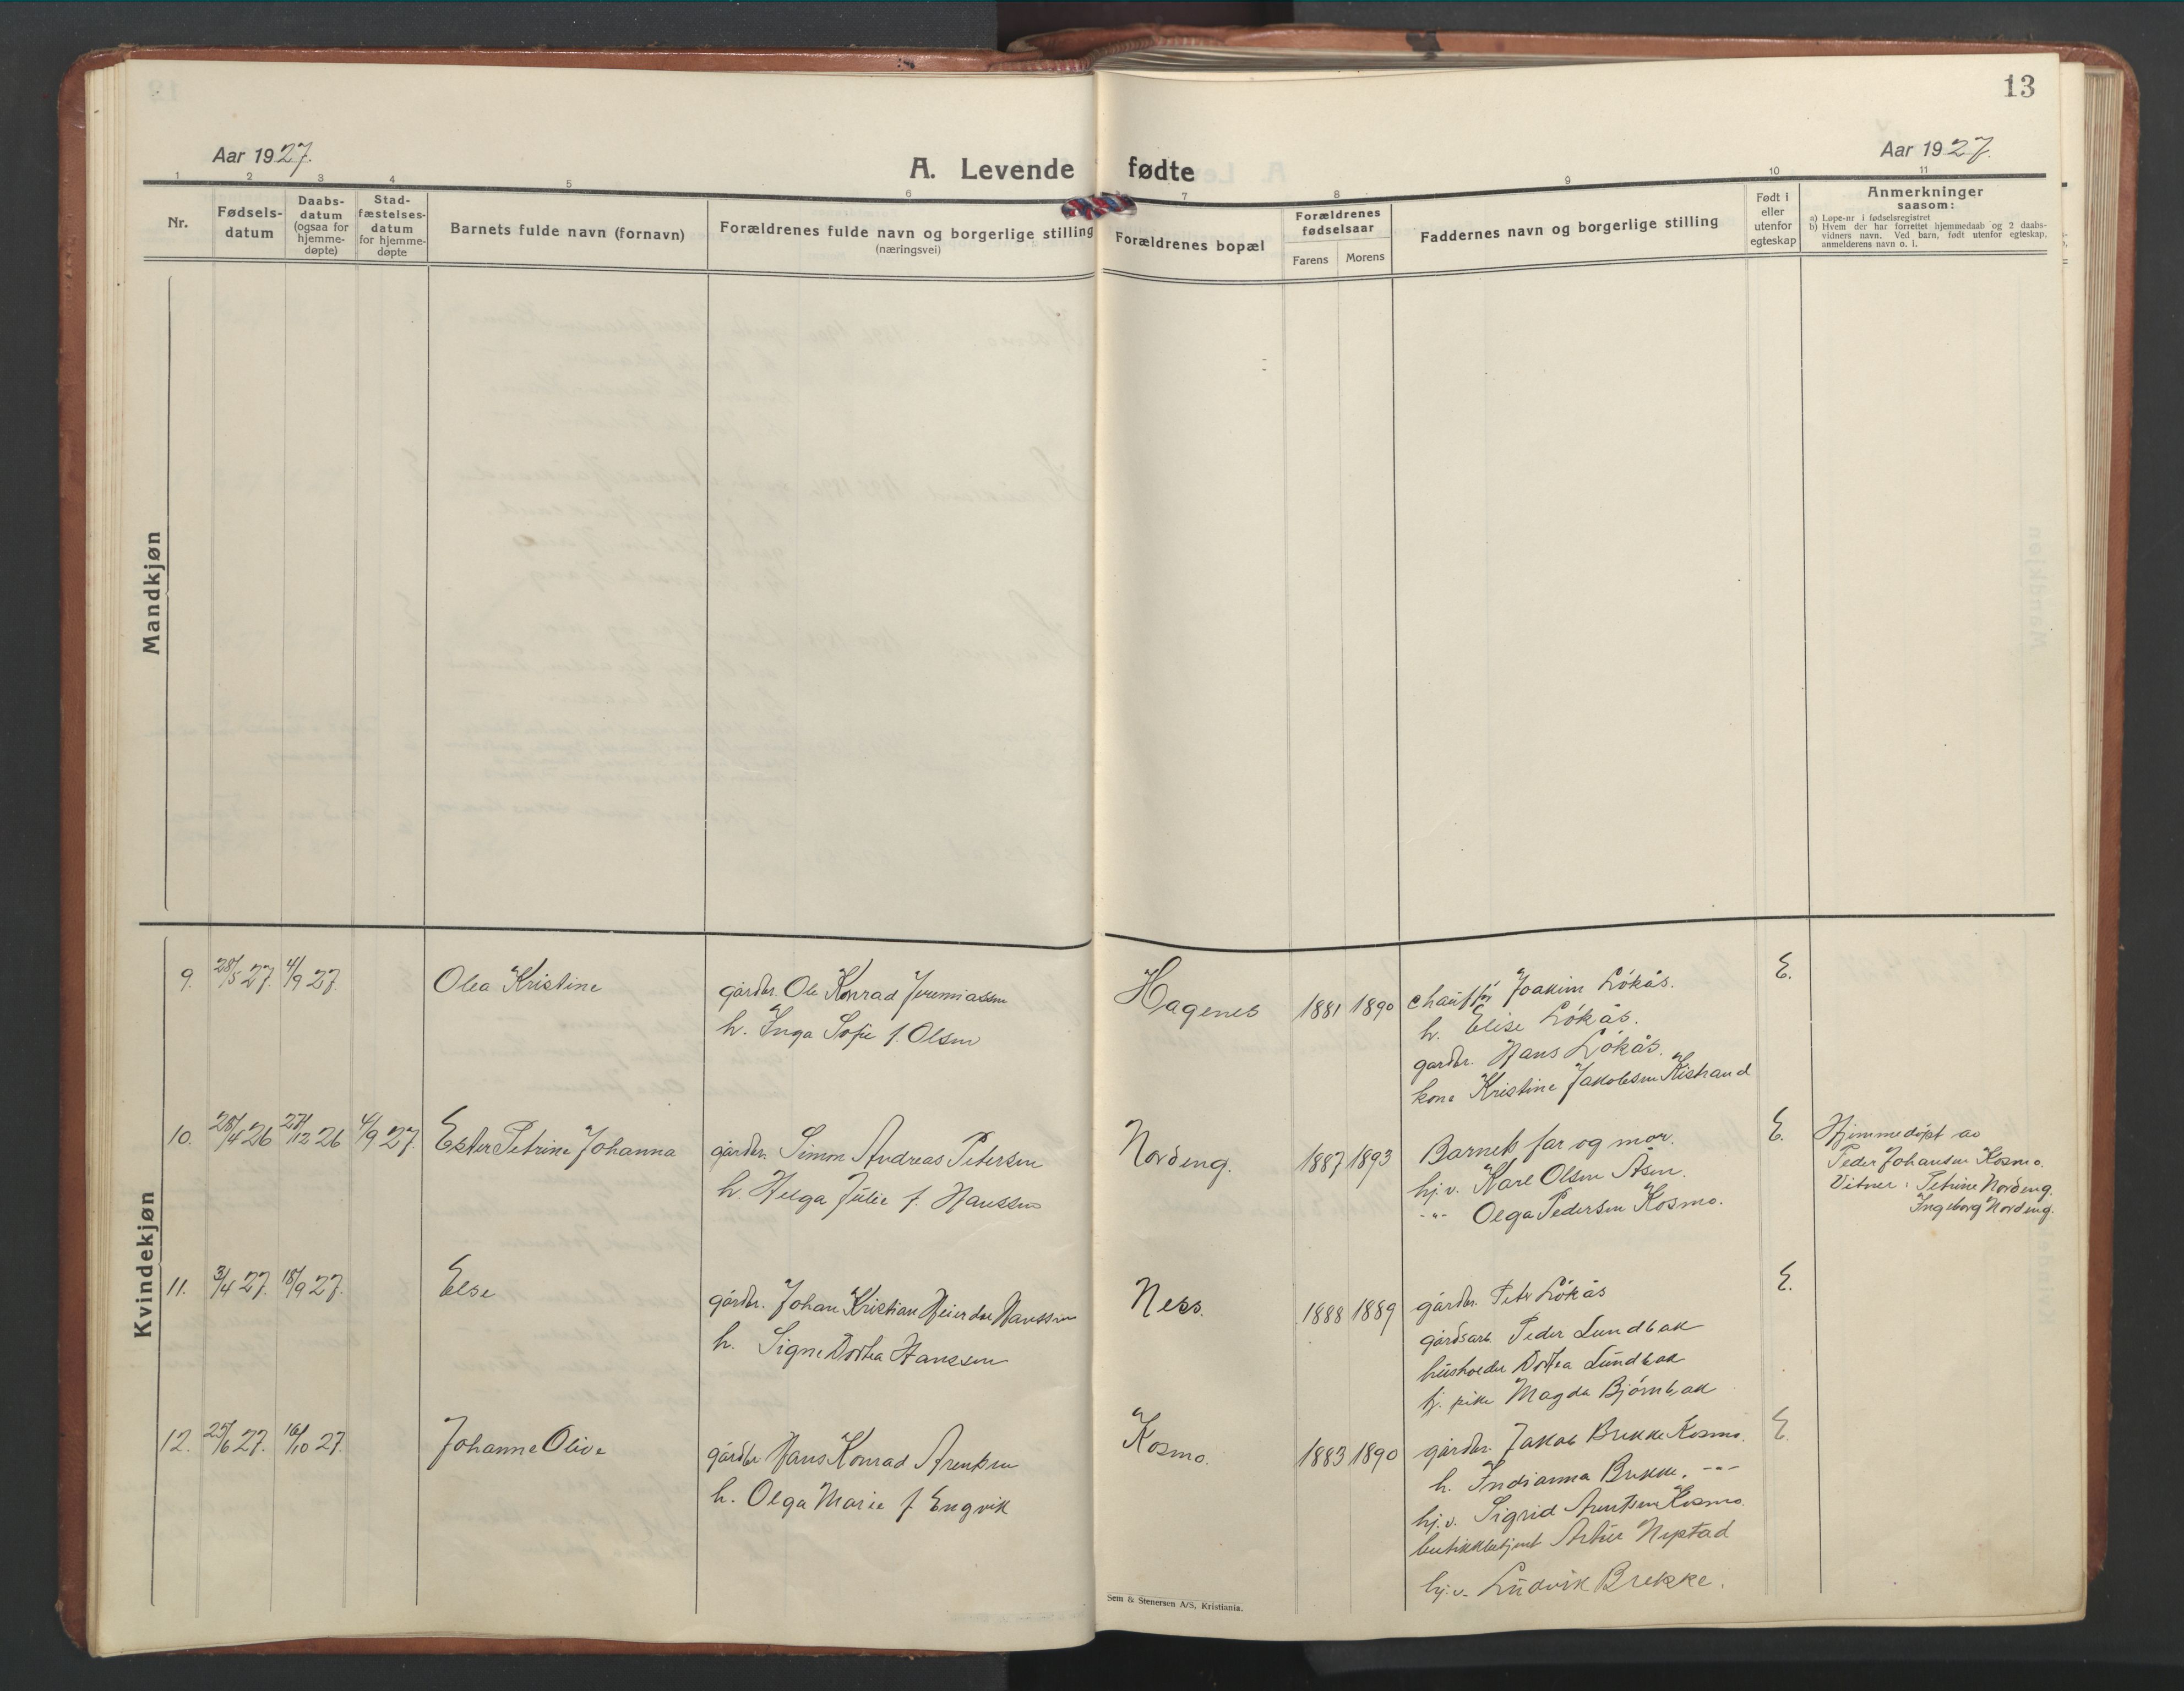 13
Aar 1927.
A. Levende fødte
Aar 1927.
1 2 3 4 5 6 7 8 9 10 11
Nr.
Fødsels-
datum
Daabs-
datum
(ogsaa for
hjemme-
døpte)
Stad-
fæstelses-
datum
for hjemme-
døpte
Barnets fulde navn (fornavn)
Forældrenes fulde navn og borgerlige stilling
(næringsvei)
Forældrenes bopæl
Forældrenes
fødselsaar
Farens Morens
Faddernes navn og borgerlige stilling
Født i
eller
utenfor
egteskap
Anmerkninger
saasom:
a) Løpe-nr i fødselsregistret
b) Hvem der har forrettet hjemmedaab og 2 daabs-
vidners navn. Ved barn, født utenfor egteskap,
anmelderens navn o. l.
Mandkjøn
Kvindekjøn
9. 28/5 27. 4/9 27. Olea Kristine
gårdbr. Ole Konrad Jeremiassen
h. Inga Sofie f. Olsen
Hagenes 1881 1890
chauffør Joakim Løkås.
h. Elise Løkås.
gårdbr. Hans Løkås.
kone Kristine Jakobsen Kistrand
E.
10. 28/4 26 27/12 26 4/9 27. Ester Petrine Johanna
gårdbr. Simon Andreas Petersen
h. Helga Julie f. Hanssen
Nordeng. 1887 1893
Barnets far og mor.
hj.v. Karl Olsen Åsen.
-"- Olga Pedersen Kosmo.
E.
Hjemmedøpt av
Peder Johansen Kosmo.
Vitner: Petrine Nordeng.
Ingeborg Nordeng.
11. 3/4 27. 18/9 27. Else
gårdbr. Johan Kristian Meierdoe Hanssen
h. Signe Dortea Hanssen
Ness. 1888 1889
gårdbr. Peter Løkås
gårdsarb. Peder Lundbak
husholder Dortea Lundbak
hj. pike Magda Bjørnbak
E.
12. 25/6 27. 16/10 27. Johanne Olive
gårdbr Hans Konrad Arentsen
h. Olga Marie f Engvik
Kosmo. 1883 1890
gårdbr. Jakob Brekke Kosmo.
h. Indianna Brekke. -"-
hj.v. Sigrid Arentsen Kosmo.
butikkbetjent Artur Nystad
hj.v. Ludvik Brekke.
E.
Sem & Stenersen A/S, Kristiania.